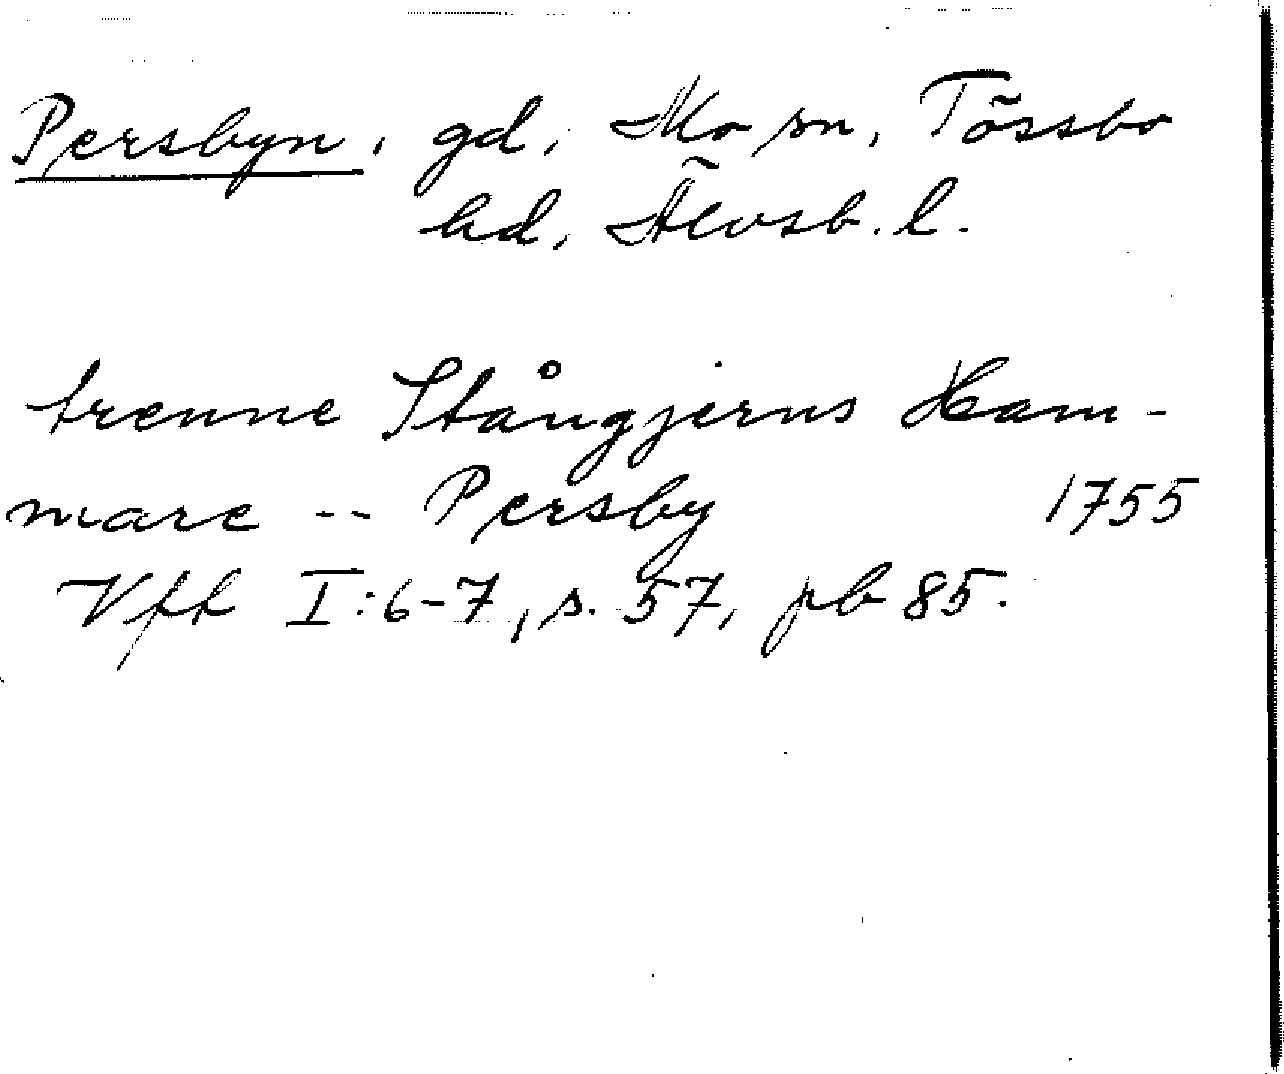 Persbyn, gd, Mo sn, Tössbo
hd, Älvsb. l.
trenne Stångjerns Ham-
mare -- Persby 1755
Vff I:6-7, s. 57, pb 85.